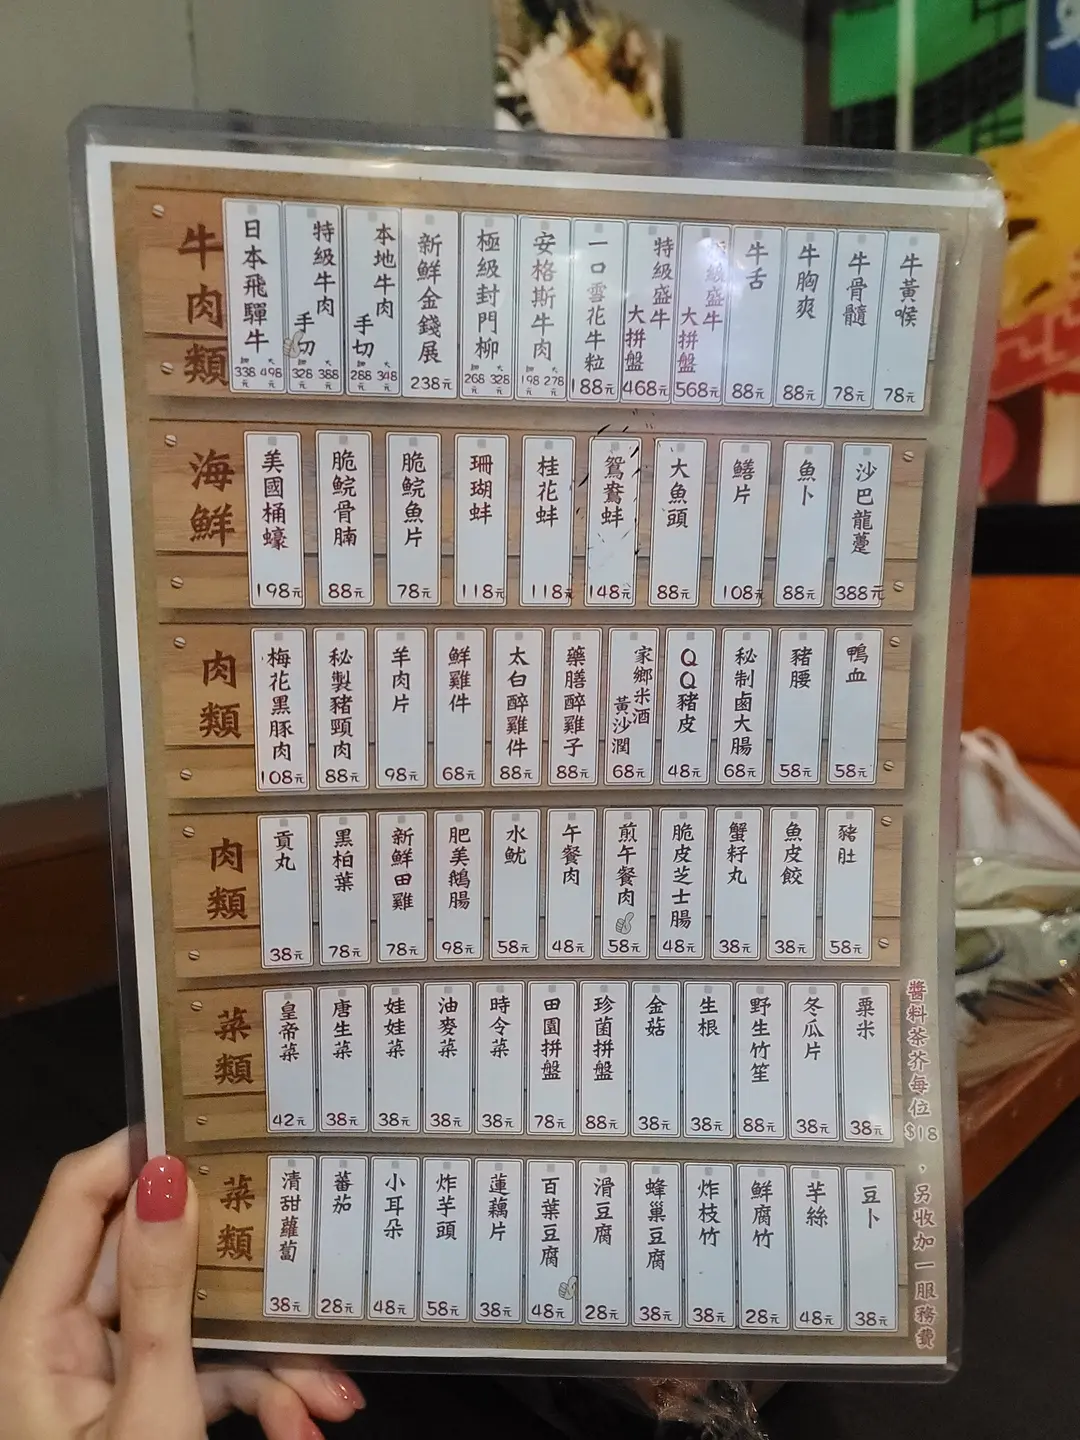 牛肉類
日本飛驒牛
細 338元
大 498元
特級牛肉
手切
細 328元
大 388元
本地牛肉
手切
細 288元
大 348元
新鮮金錢展
238元
極級封門柳
細 268元
大 328元
安格斯牛肉
細 198元
大 278元
一口雪花牛粒
188元
特級盛牛
大拼盤
468元
級盛牛
大拼盤
568元
牛舌
88元
牛胸爽
88元
牛骨髓
78元
牛黃喉
78元
海鮮
美國桶蠔
198元
脆鯇骨腩
88元
脆鯇魚片
78元
珊瑚蚌
118元
桂花蚌
118元
鴛鴦蚌
148元
大魚頭
88元
鱔片
108元
魚卜
88元
沙巴龍躉
388元
肉類
梅花黑豚肉
108元
秘製豬頸肉
88元
羊肉片
98元
鮮雞件
68元
太白醉雞件
88元
藥膳醉雞子
88元
家鄉米酒
黃沙潤
68元
QQ豬皮
48元
秘制鹵大腸
68元
豬腰
58元
鴨血
58元
肉類
貢丸
38元
黑柏葉
78元
新鮮田雞
78元
肥美鵝腸
98元
水魷
58元
午餐肉
48元
煎午餐肉
58元
脆皮芝士腸
48元
蟹籽丸
38元
魚皮餃
38元
豬肚
58元
菜類
皇帝菜
42元
唐生菜
38元
娃娃菜
38元
油麥菜
38元
時令菜
38元
田園拼盤
78元
珍菌拼盤
88元
金菇
38元
生根
38元
野生竹笙
88元
冬瓜片
38元
粟米
38元
菜類
清甜蘿蔔
38元
蕃茄
28元
小耳朵
48元
炸芋頭
58元
蓮藕片
38元
百葉豆腐
48元
滑豆腐
28元
蜂巢豆腐
38元
炸枝竹
38元
鮮腐竹
28元
芋絲
48元
豆卜
38元
醬料茶芥每位$18，另收加一服務費